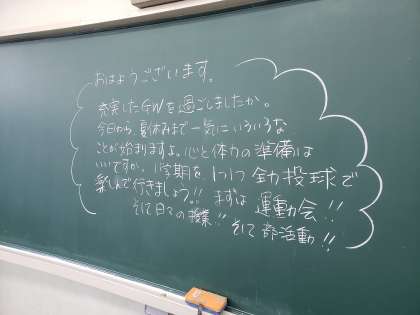 おはようございます。
充実したGWを過ごしましたか。
今日から、夏休みまで一気にいろいろな
ことが始まりますよ。心と体力の準備は
いいですか。1学期を1つ1つ全力投球で
楽しんで行きましょう!! まずは 運動会!!
そして日々の授業!! そして 部活動!!